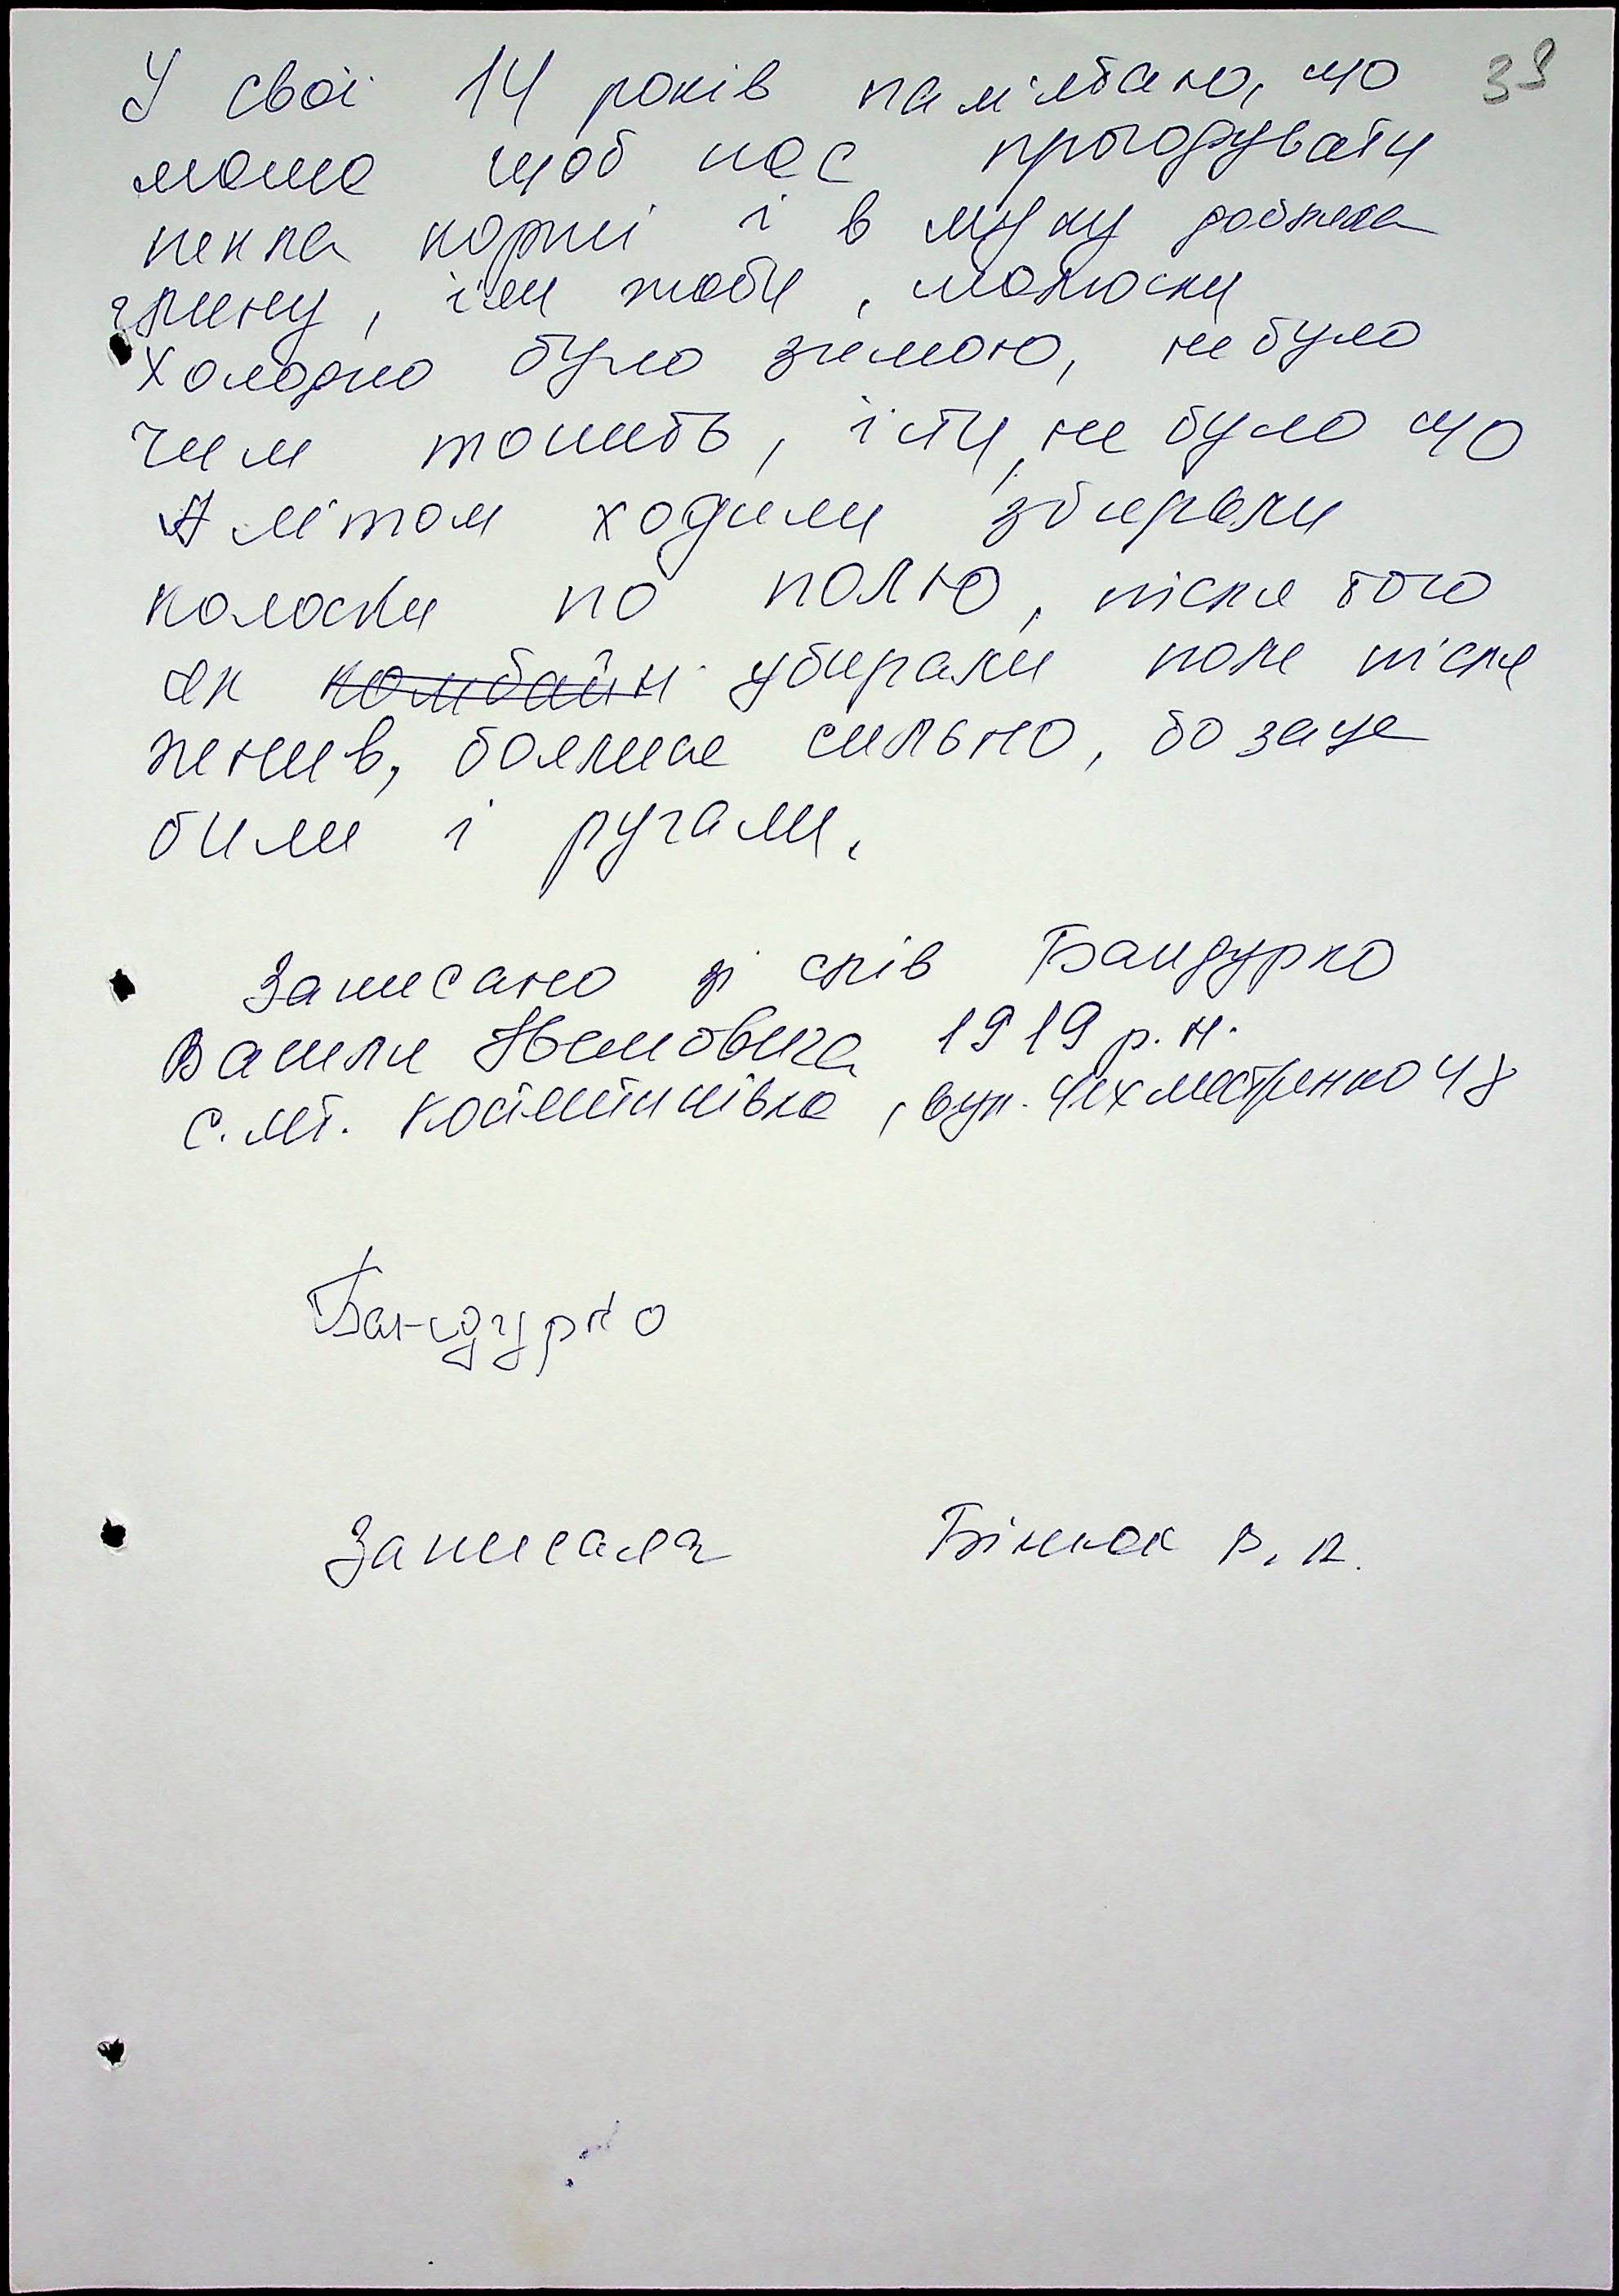 У свої 14 років пам'ятаю, що 39
мама щоб нас прогодувати
пекла коржі і в муку добавляла
глину, їли жаби, молюски
Холодно було зимою, не було
чим топить, їсти не було що
А літом ходили збирали
колоски по полю, після того
як комбайн убирали поле після
жнив, боялися сильно, бо за це
били і ругали.
Записано зі слів Бандурко
Василя Івановича 1919 р.н.
с.мт. Костянтинівка, вул. 48
Бандурко
Записала Бінюк В. П.